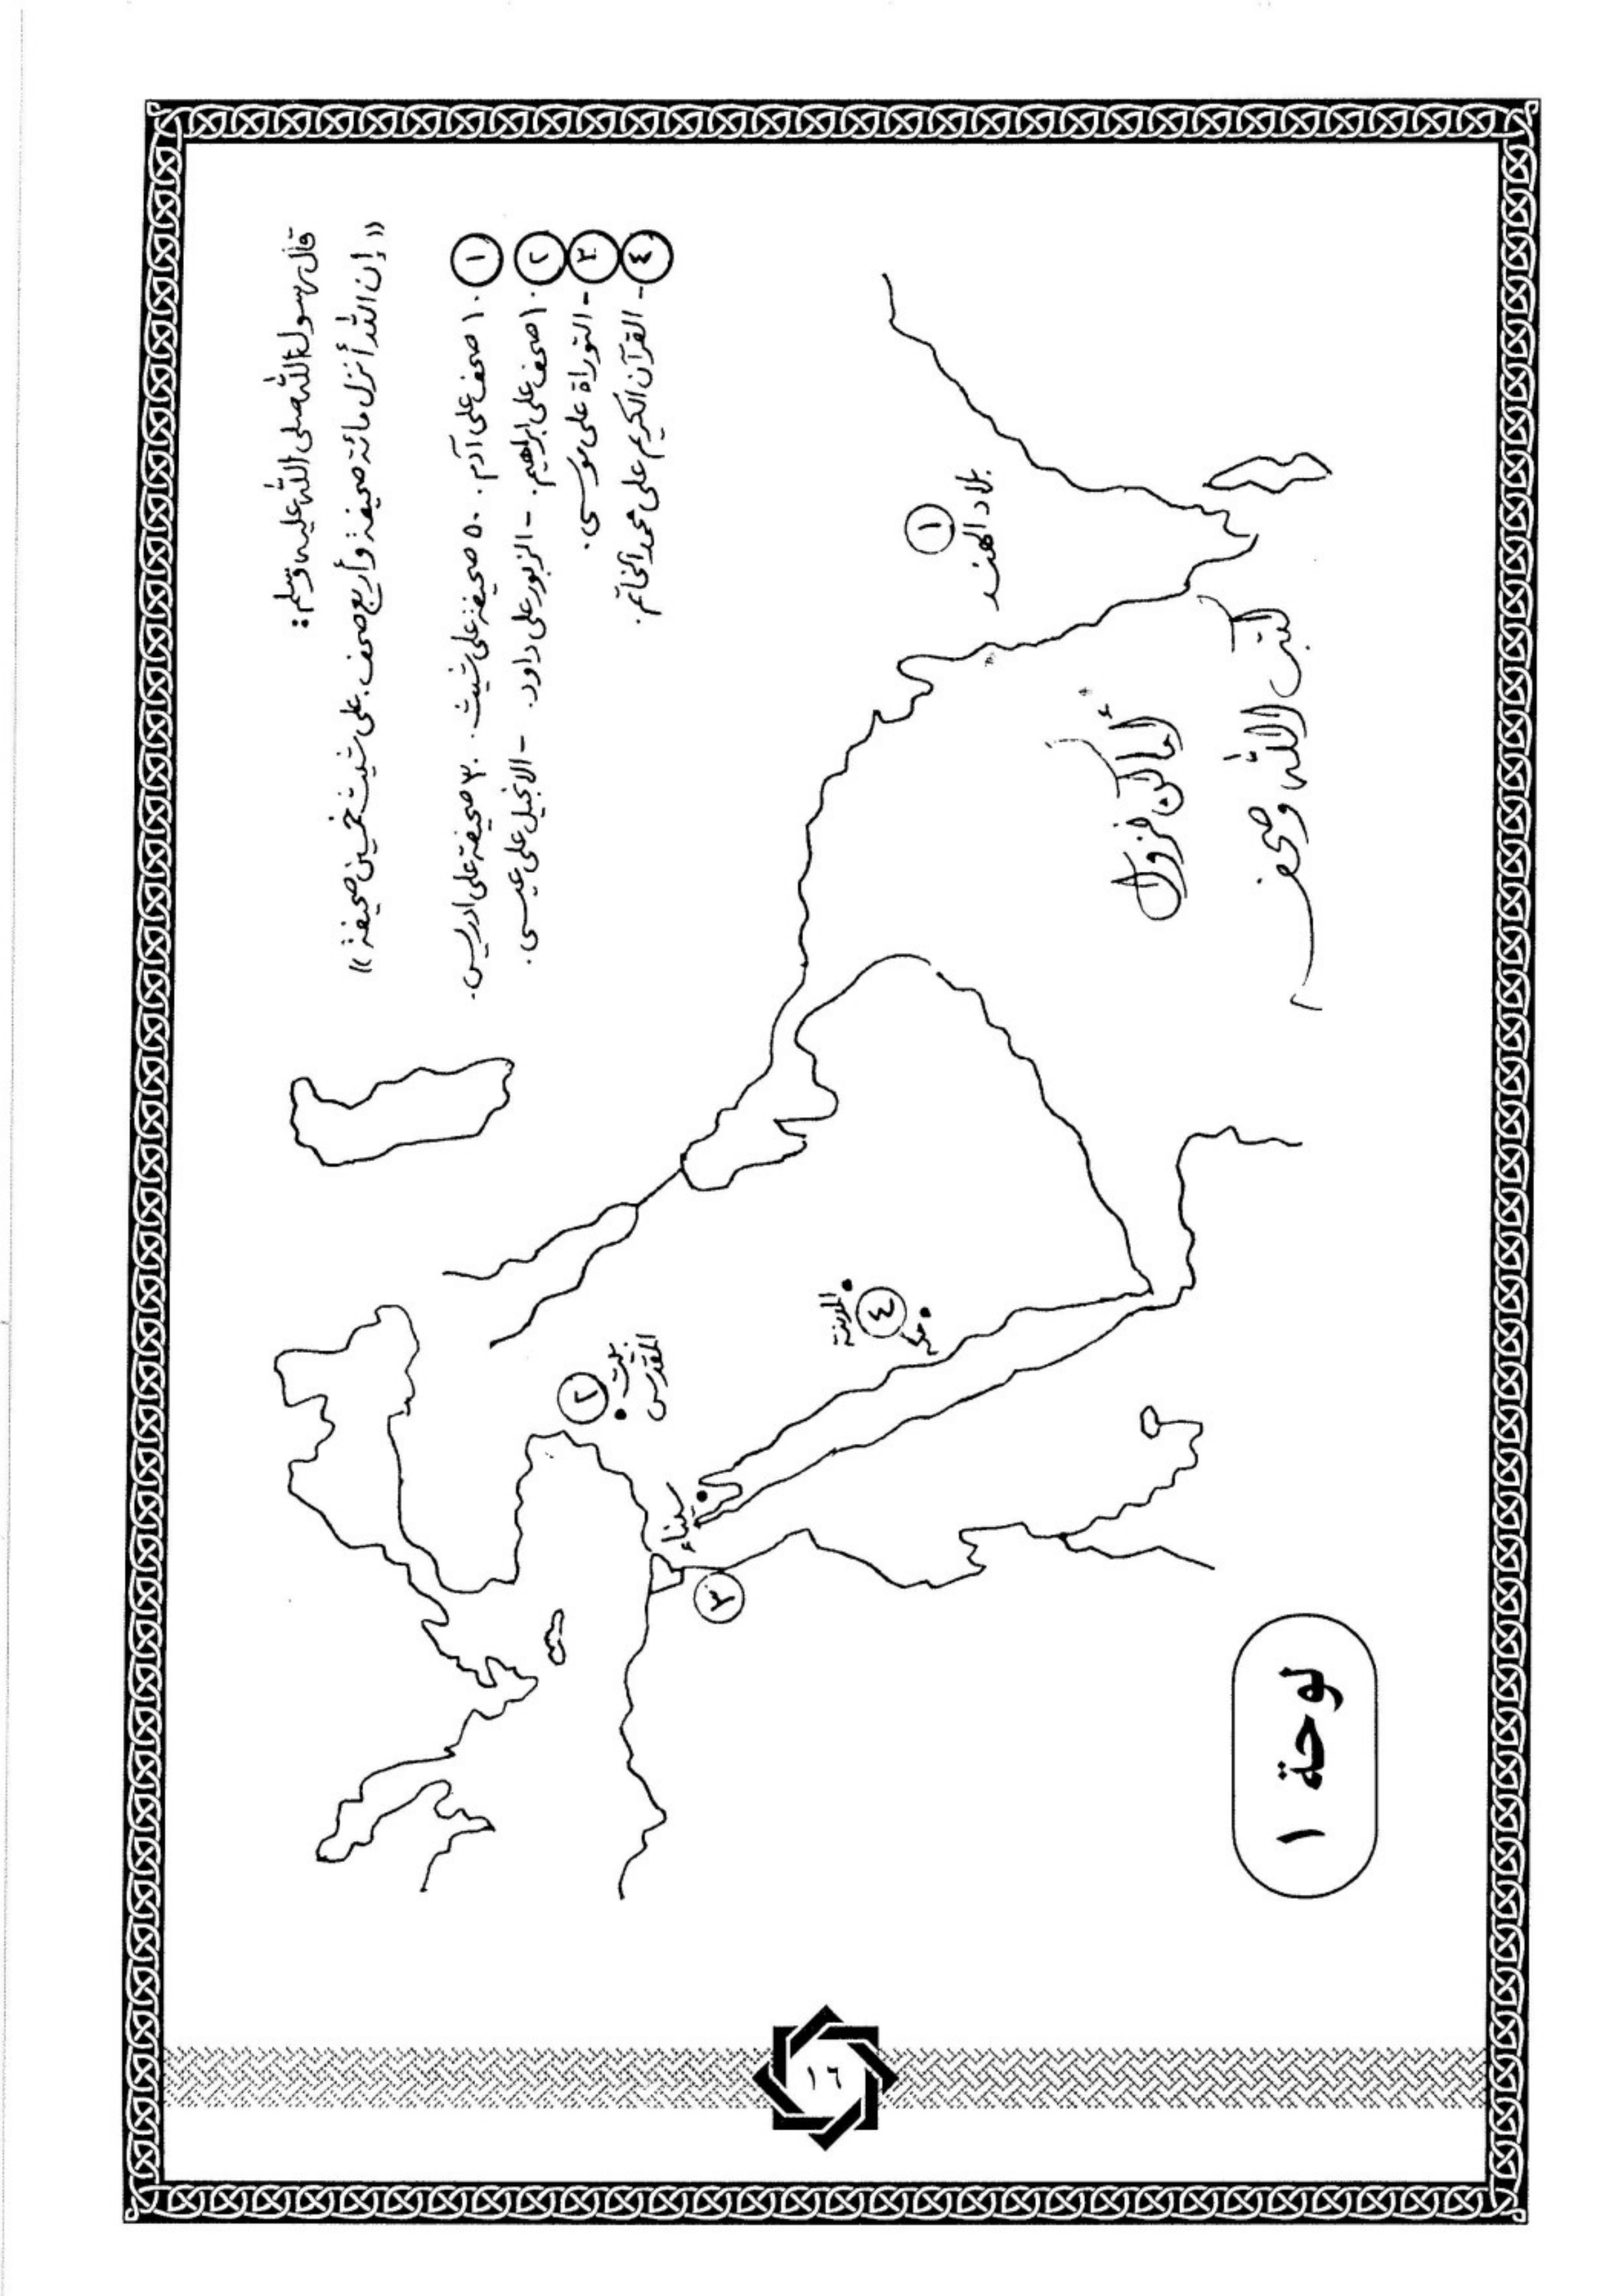 قال رسول الله صلى الله عليه وسلم:
«إن الله أنزل مائة صحيفة وأربع صحف. على شيث خمسين صحيفة»
١ ١٠ صحف على آدم. ٥٠ صحيفة على شيث. ٣٠ صحيفة على ادريس.
٢ ١٠ صحف على ابراهيم. - الزبور على داود. - الانجيل على عيسى.
٣ - التوراة على موسى.
٤ - القرآن الكريم على محمد الخاتم.
١
بلاد الهند
٢
بيت
المقدس
سيناء
٣
المدينة
٤
مكة
أماكن نزول
كتب الله وصحفه
لوحة ١
١٦